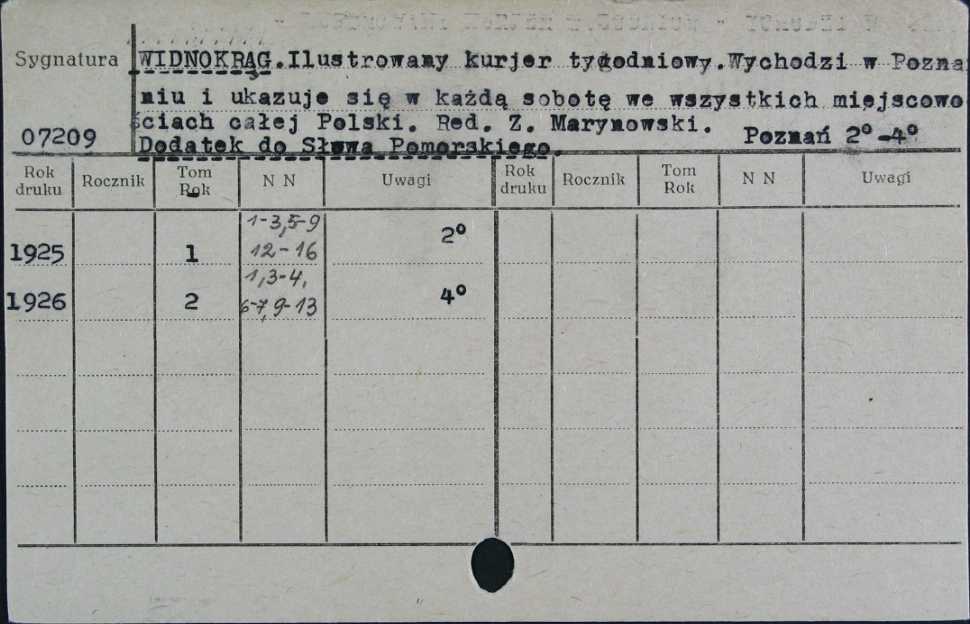 Sygnatura WIDNOKRĄG.Ilustrowany kurjer tygodniowy.Wychodzi w Pozna
niu i ukazuje się w każdą sobotę we wszystkich miejscowo
ściach całej Polski. Red. Z. Marynowski. Poznań 2°-4°
07209 Dodatek do Słowa Pomorskiego.
Rok druku Rocznik Tom Rok N N Uwagi Rok druku Rocznik Tom Rok N N Uwagi
1-3,5-9
1925 1 12-16 2°
1,3-4,
1926 2 6-7,9-13 4°